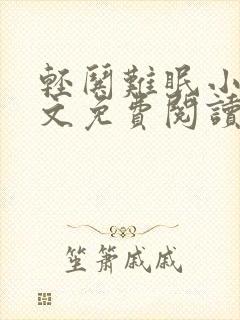 輕關難眠小
文免費閱讀
笙簫戚戚